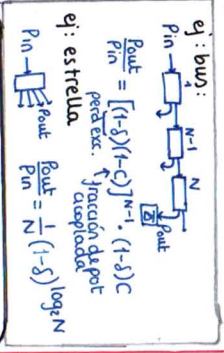 ej: bus:
Pin
1
N-1
N
Pout
Pout/Pin = [(1-δ)(1-C)]^{N-1} · (1-δ)C
perd exc.
fracción de pot
acoplada
ej: estrella
Pin
Pout
Pout/Pin = 1/N (1-δ)^{log₂N}